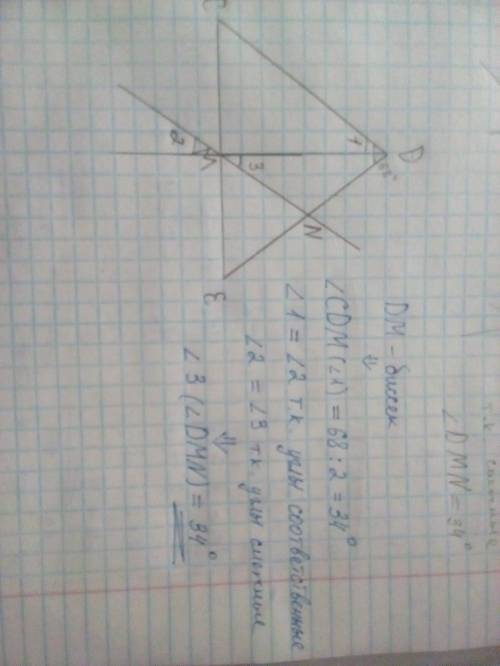 ∠DMN = 34°
C
D
68°
1
2
M
3
N
E
DM - биссек
⇓
∠CDM (∠1) = 68 : 2 = 34°
∠1 = ∠2 т.к. углы соответственные
∠2 = ∠3 т.к. углы смежные
⇓
∠3 (∠DMN) = 34°